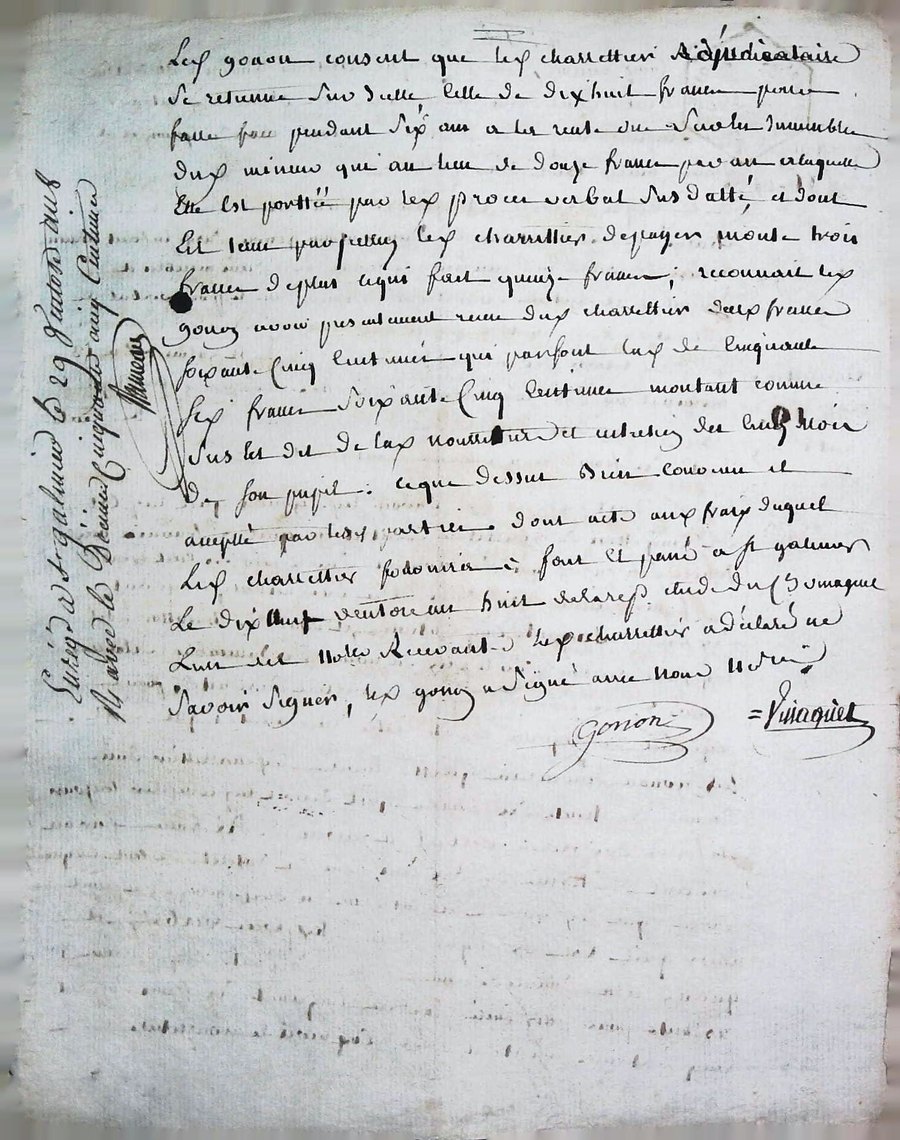 Led. gonon consent que led. charrettier adjudicataire
se retienne sur icelle celle de dix huit francs pour
fasse pendant six ans a la rente de sur les immeubles
dud. mineur qui au lieu de douze francs par an a laquelle
Elle est porttée par led. proces verbal susdatté, et dont
Est tenu par led. charrettier de payer monte trois
francs de plus ce qui fait quinze francs; reconnait led.
gonon avoir presentement recu dud. charrettier deux francs
soixante Cinq Centimes qui parfont lad. de Cinquante
six francs soixante Cinq Centimes montant comme
sus est dit de lad. nourriture et entretien des Cinq mois
de son pupil. ce que dessus Bien convenu et
accepté par lesd. parties dont acte aux fraix duquel
Led. charrettier fait et passé a st galmier
Le dix neuf ventose an huit de la rep. etude du Cn Vinaguet
L'un des Notres Recevant. led. charrettier a déclaré ne
savoir signer, led. gonon a signé avec nous Notre
gonon = Vinaguet
Enreg. a st galmier le 29 ventose an 8
Recu le Decime Cinquante cinq Centimes